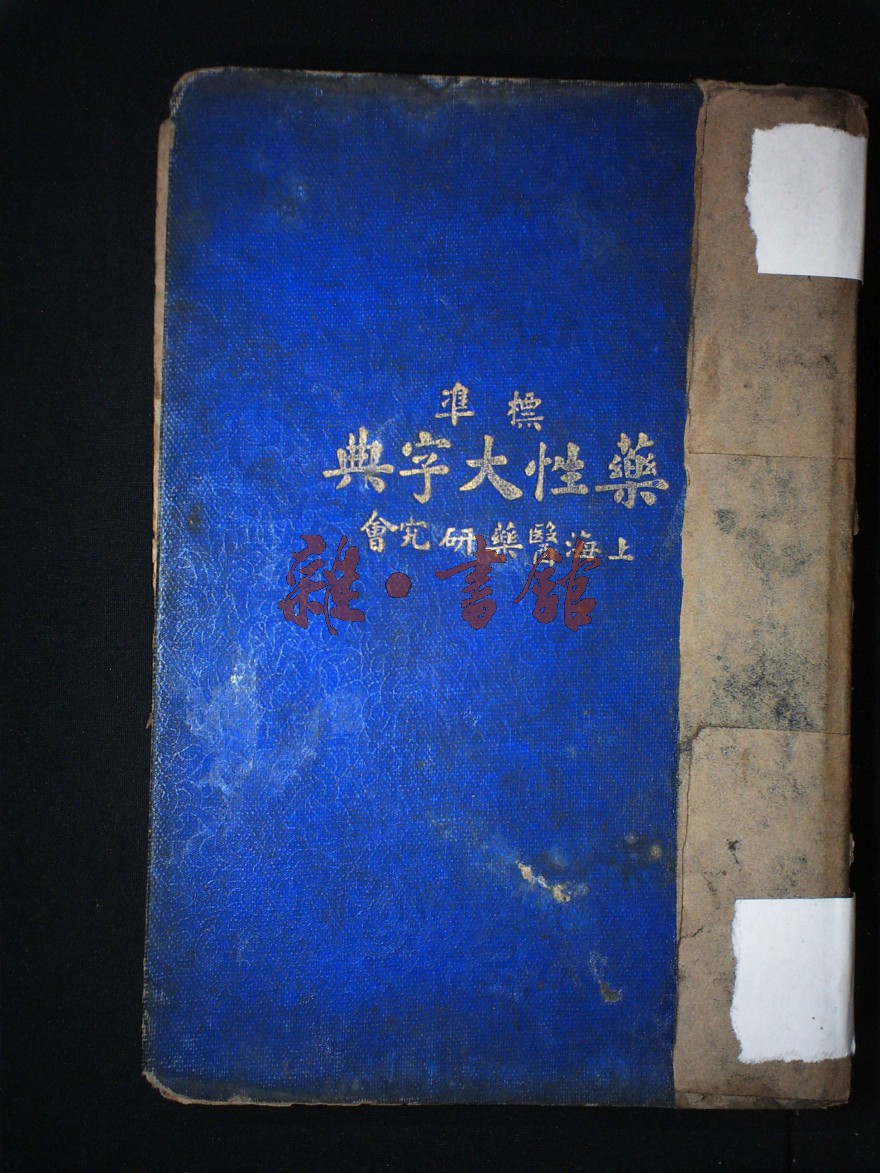 標準
藥性大字典
上海醫藥研究會
雜·書館